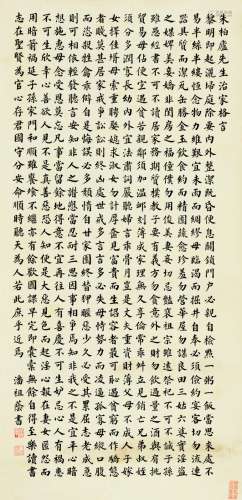 朱柏廬先生治家格言
黎明即起灑掃庭除要內外整潔既昏便息關鎖門戶必親自檢點一粥一飯當思來處不
易半絲半縷恆念物力維艱宜未雨而綢繆毋臨渴而掘井自奉必須儉約宴客切勿流連
器具質而潔瓦缶勝金玉飲食約而精園蔬愈珍饈勿營華屋勿謀良田三姑六婆實淫盜
之媒婢美妾嬌非閨房之福僮僕勿用俊美妻妾切忌豔妝祖宗雖遠祭祀不可不誠子孫
雖愚經書不可不讀居身務期質樸教子要有義方勿貪意外之財勿飲過量之酒與肩挑
貿易毋佔便宜見貧苦親鄰須加溫卹刻薄成家理無久享倫常乖舛立見銷亡兄弟叔姪
須分多潤寡長幼內外宜法肅辭嚴聽婦言乖骨肉豈是丈夫重貲財薄父母不成人子嫁
女擇佳壻毋索重聘娶媳求淑女勿計厚奩見富貴而生諂容者最可恥遇貧窮而作驕態
者賤莫甚居家戒爭訟訟則終凶處世戒多言言多必失毋恃勢力而凌逼孤寡勿貪口腹
而恣殺生禽乖僻自是悔誤必多頹惰自甘家園終替狎暱惡少久必受其累屈志老成急
則可相依輕聽發言安知非人之譖愬當忍耐三思因事相爭焉知非我之不是須平心暗想
施惠毋念受恩莫忘凡事當留餘地得意不宜再往人有喜慶不可生妒忌心人有禍患
不可生欣幸心善欲人見不是真善惡恐人知便是大惡見色而起淫心報在妻女匿怨而
用暗箭禍延子孫家門和順雖饔飧不繼亦有餘歡國課早完即囊橐無餘自得至樂讀書
志在聖賢為官心存君國守分安命順時聽天為人若此庶乎近焉 潘祖蔭書